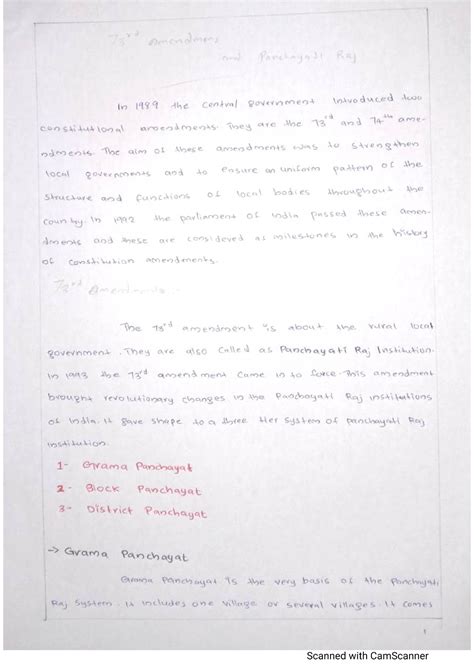 73rd Amendment
and Panchayati Raj
In 1989 the central government introduced two
constitutional amendments. They are the 73rd and 74th ame-
ndments. The aim of these amendments was to strengthen
local governments and to ensure an uniform pattern of the
structure and functions of local bodies throughout the
country. In 1992 the parliament of India passed these amen-
dments and these are considered as milestones in the history
of constitution amendments.
73rd Amendments :-
The 73rd amendment is about the rural local
government. They are also called as Panchayati Raj Institution.
In 1993 the 73rd amendment came in to force. This amendment
brought revolutionary changes in the Panchayati Raj institutions
of India. It gave shape to a three tier system of panchayati Raj
institution.
1- Grama Panchayat
2- Block Panchayat
3- District Panchayat
-> Grama Panchayat
Grama Panchayat is the very basis of the Panchayati
Raj System. It includes one village or several villages. It comes
1
Scanned with CamScanner